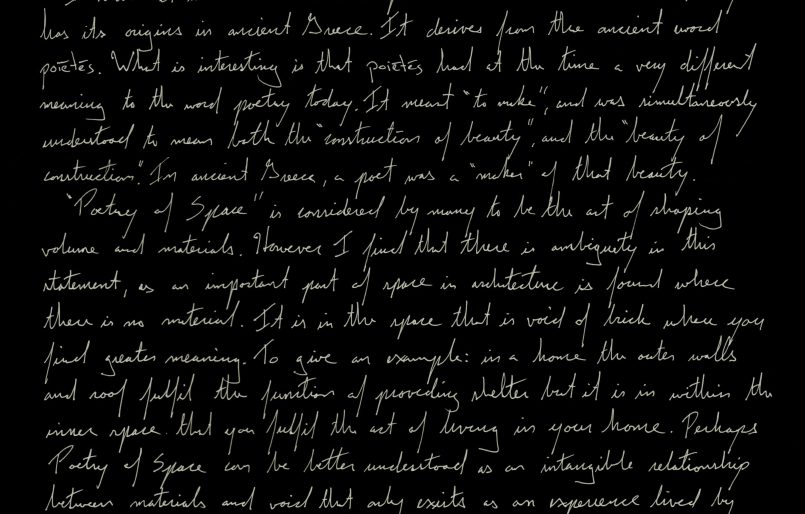 has its origins in ancient Greece. It derives from the ancient word
poiētēs. What is interesting is that poiētēs had at the time a very different
meaning to the word poetry today. It meant "to make", and was simultaneously
understood to mean both the "construction of beauty", and the "beauty of
construction". In ancient Greece, a poet was a "maker" of that beauty.
"Poetry of Space" is considered by many to be the art of shaping
volume and materials. However I find that there is ambiguety in this
statement, as an important part of space in architecture is found where
there is no material. It is in the space that is void of brick where you
find greater meaning. To give an example: in a home the outer walls
and roof fulfil the function of providing shelter but it is in within the
inner space that you fulfil the act of living in your home. Perhaps
Poetry of Space can be better understood as an intangible relationship
between materials and void that only exists as an experience lived by